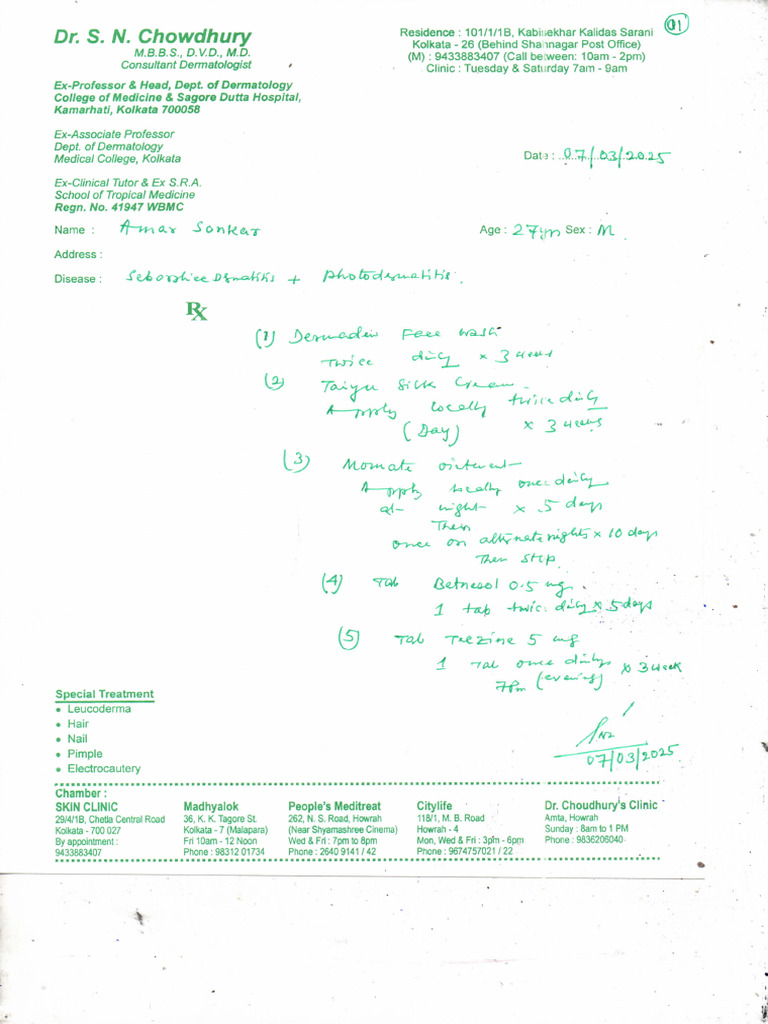 01
Dr. S. N. Chowdhury
M.B.B.S., D.V.D., M.D.
Consultant Dermatologist
Ex-Professor & Head, Dept. of Dermatology
College of Medicine & Sagore Dutta Hospital,
Kamarhati, Kolkata 700058
Ex-Associate Professor
Dept. of Dermatology
Medical College, Kolkata
Ex-Clinical Tutor & Ex S.R.A.
School of Tropical Medicine
Regn. No. 41947 WBMC
Residence : 101/1/1B, Kabisekhar Kalidas Sarani
Kolkata - 26 (Behind Shahnagar Post Office)
(M) : 9433883407 (Call between: 10am - 2pm)
Clinic : Tuesday & Saturday 7am - 9am
Date : 07/03/2025
Name : Amar Sankar Age : 27yrs Sex : M
Address :
Disease : Seborrhice Dermatitis + Photodermatitis.
Rx
(1) Dermadew Face Wash
Twice dily x 3 weeks
(2) Taiyu Silk Cream
Apply locally twice dily
(Day) x 3 weeks
(3) Momate ointment
Apply locally once dily
at night x 5 days
Then
once on alternate nights x 10 days
Then stop
(4) Tab Betnesol 0.5 mg.
1 tab twice dily x 5 days
(5) Tab Teczine 5 mg
1 Tab once dily x 3 week
7pm (evening)
07/03/2025
Special Treatment
• Leucoderma
• Hair
• Nail
• Pimple
• Electrocautery
Chamber :
SKIN CLINIC
29/4/1B, Chetla Central Road
Kolkata - 700 027
By appointment :
9433883407
Madhyalok
36, K. K. Tagore St.
Kolkata - 7 (Malapara)
Fri 10am - 12 Noon
Phone : 98312 01734
People's Meditreat
262, N. S. Road, Howrah
(Near Shyamashree Cinema)
Wed & Fri : 7pm to 8pm
Phone : 2640 9141 / 42
Citylife
118/1, M. B. Road
Howrah - 4
Mon, Wed & Fri : 3pm - 6pm
Phone : 9674757021 / 22
Dr. Choudhury's Clinic
Amta, Howrah
Sunday : 8am to 1 PM
Phone : 9836206040